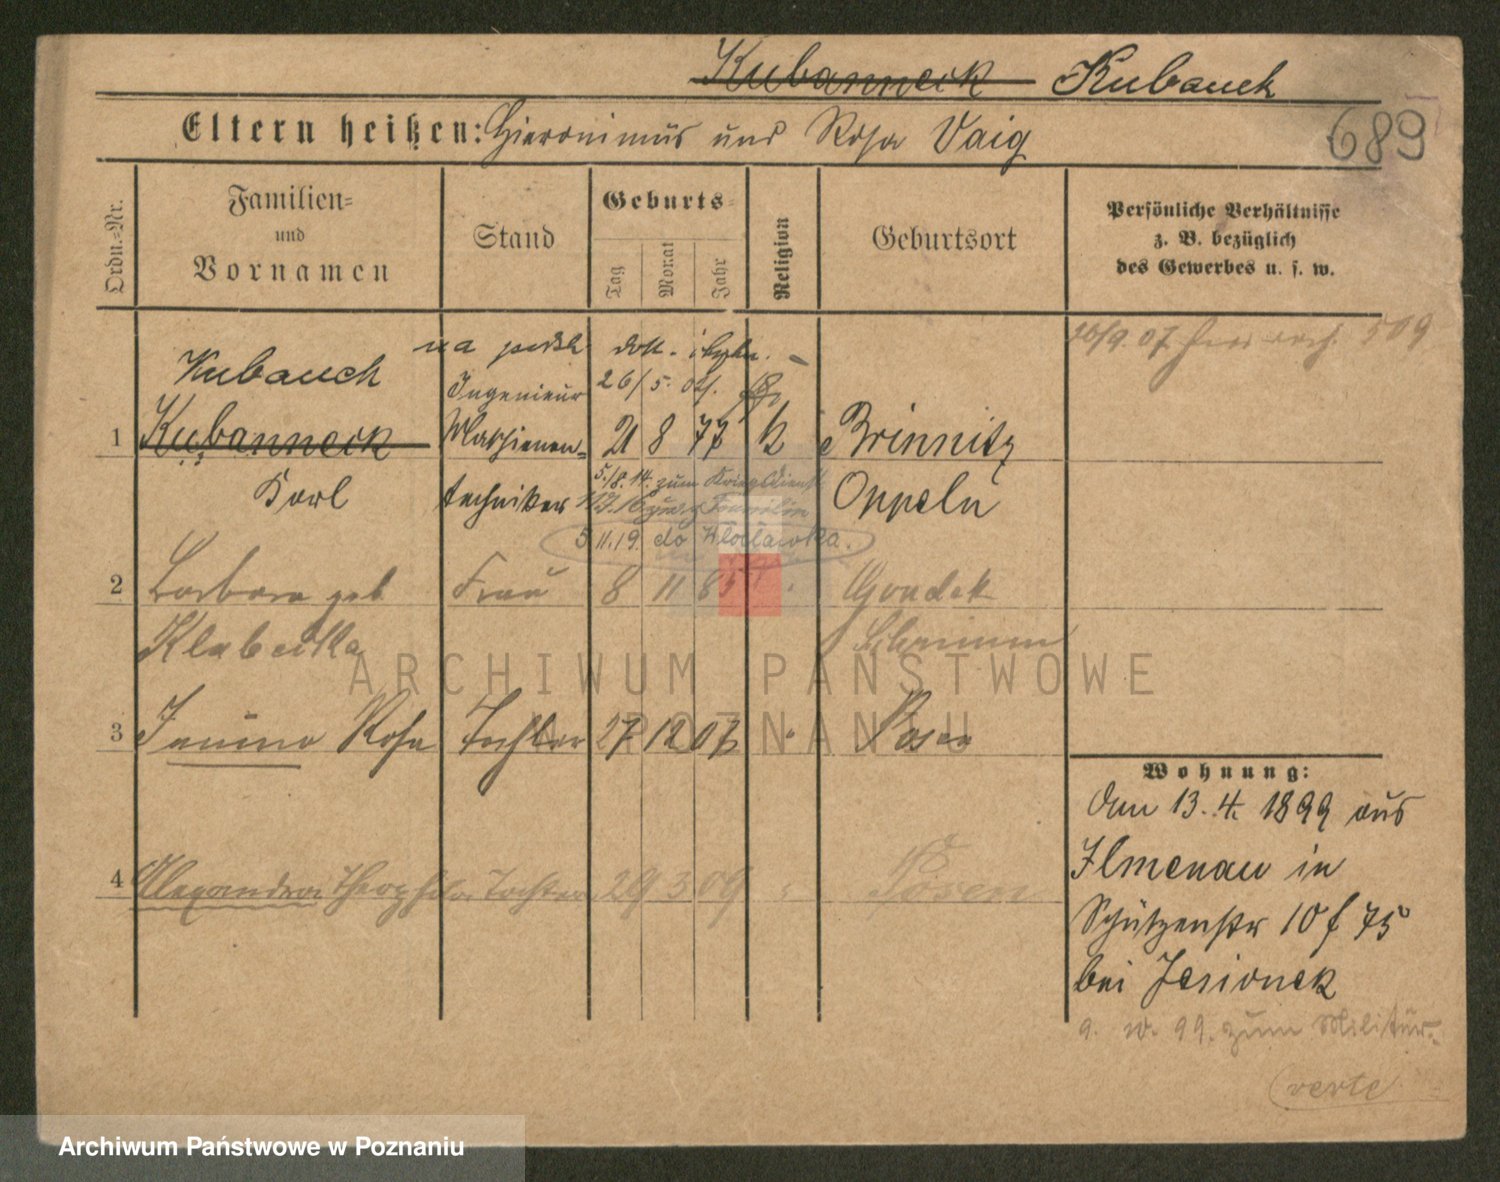 Kubanneck Kubanek
689
Eltern heißen: Hieronimus und Rosa Vaig
Ordn.-Nr.
Familien-
und
Vornamen
Stand
Geburts-
Tag
Monat
Jahr
Religion
Geburtsort
Persönliche Verhältnisse
z. B. bezüglich
des Gewerbes u. s. w.
na podst.
26/9. 07 509
Kubanek
Ingenieur
26/5.
1 Kubanneck Maschienen- 21 8 77 k Brinnitz
Karl techniker 5./8. 14. zum Kriegsdienst Oppeln
5 11.19. do Włocławka.
2 Barbara geb Frau 8 11 85 Gondek
Klabecka Schrimm
3 Janina Rosa Tochter 27 12 07 " Posen
4 Alexandra Theophila Tochter 29 3 09 " Posen
Wohnung:
Den 13. 4. 1899 aus
Ilmenau in
Schützenstr 10 f 75
bei Jesionek
9. 10. 99. zum Militär.
(verte)
ARCHIWUM PAŃSTWOWE
W POZNANIU
Archiwum Państwowe w Poznaniu